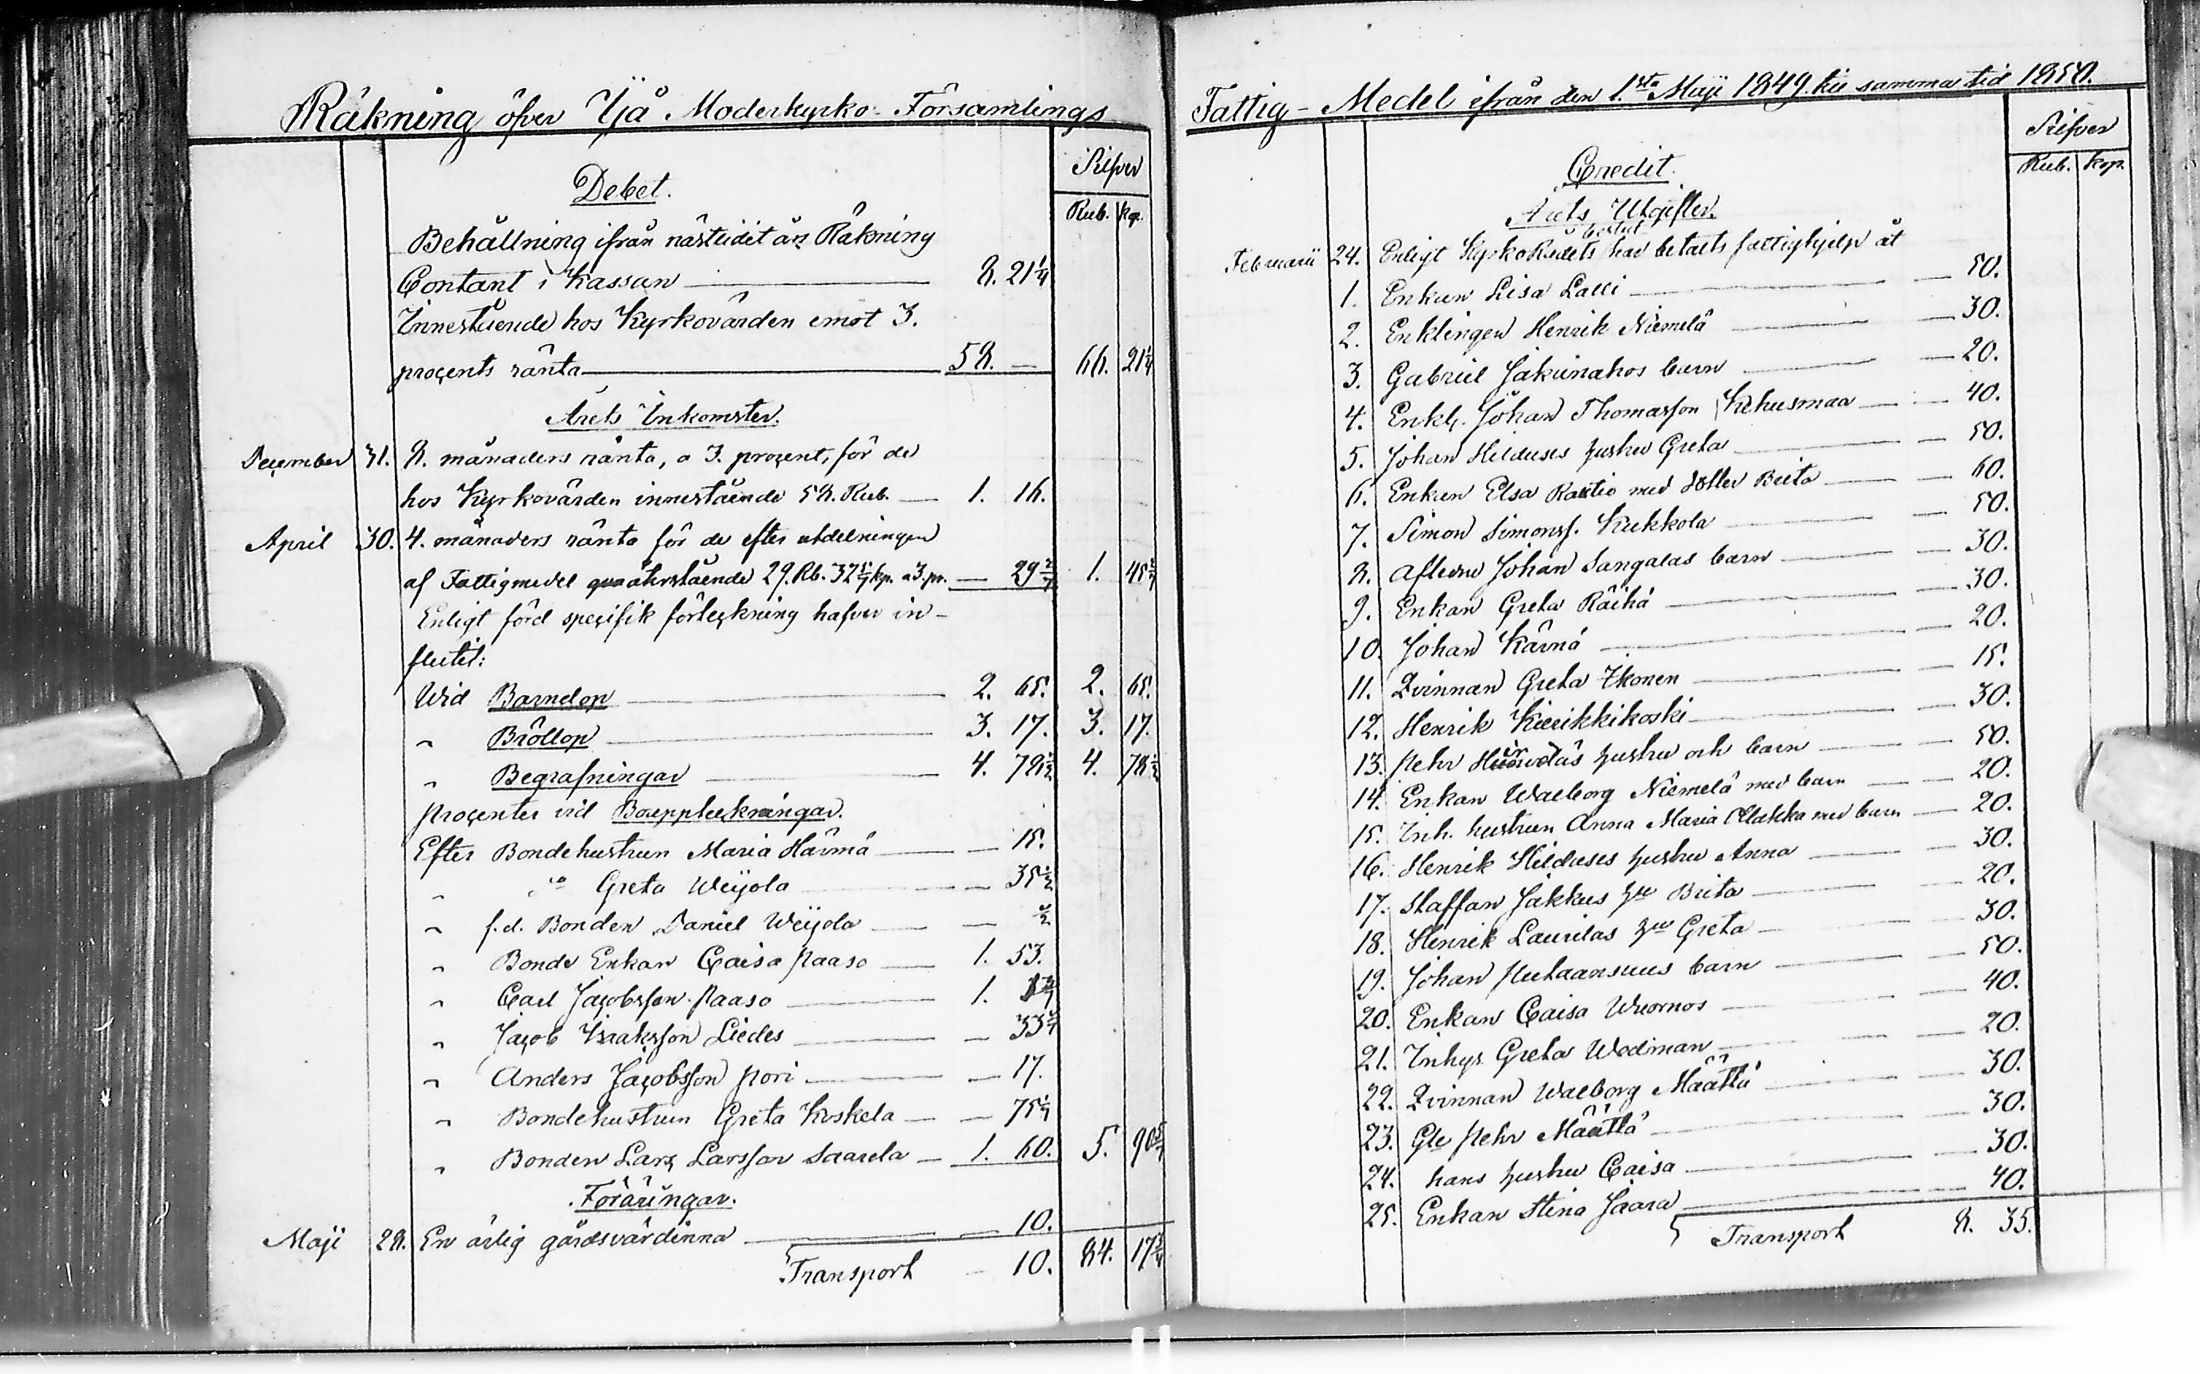 Räkning öfver Ijå Moderkyrko-Församlings
Silfver
Debet.
Rub. kop.
Behållning ifrån nästledit års Räkning
Contant i Kassan 8. 21¼
Innestående hos Kyrkovärden emot 3.
procents ränta 58. — 66. 21¼
Årets Inkomster.
December 31. 8. månaders ränta, a 3. procent, för de
hos Kyrkovärden innestående 58. Rub. 1. 16.
April 30. 4. månaders ränta för de efter utdelningen
af Fattigmedel återstående 29. Rb. 32 kp. a 3. pr. 29 2/7 1. 45 2/7
Enligt förd specifik förteckning hafver in-
flutit:
Wid Barndop 2. 65. 2. 65.
" Bröllop 3. 17. 3. 17.
" Begrafningar 4. 78½ 4. 78½
Procenter vid Bouppteckningar.
Efter Bondehustrun Maria Härmä 15.
" do Greta Weijola 35½
" f.d. Bonden Daniel Weijola ½
" Bonde Enkan Caisa Paaso 1. 53.
" Carl Jacobsson Paaso 1.
" Jacob Isaksson Liedes 33
" Anders Jacobsson Pori 17.
" Bondehustrun Greta Koskela 75
" Bonden Lars Larsson Saarela 1. 60. 5. 90
Föräringar.
Maji 28. En ärlig gårdsvärdinna 10.
Transport 10. 84. 17
Fattig-Medel ifrån den 1.sta Maji 1849. till samma tid 1850.
Silfver
Credit.
Rub. kop.
Årets Utgifter.
beslut
Februarii 24. Enligt KyrkoRådets har betalts fattighjelp åt
1. Enkan Lisa Lalli 50.
2. Enklingen Henrik Niemelä 30.
3. Gabriel Jakunahos barn 20.
4. Enkl. Johan Thomasson Kehusmaa 40.
5. Johan Hilduses hustru Greta 50.
6. Enkan Elsa Rautio med dotter Brita 60.
7. Simon Simonss. Kukkola 50.
8. Afledne Johan Sangalas barn 30.
9. Enkan Greta Räihä 30.
10. Johan Kärnä 20.
11. Qvinnan Greta Ikonen 15.
12. Henrik Kiurikkikoski 30.
13. Pehr hustru och barn 50.
14. Enkan Walborg Niemelä med barn 20.
15. Inh. hustrun Anna Maria med barn 20.
16. Henrik Hilduses hustru Anna 30.
17. Staffan Jakkus hu Brita 20.
18. Henrik Laurilas hu Greta 30.
19. Johan barn 50.
20. Enkan Caisa Wuornos 40.
21. Inhys Greta Wediman 20.
22. Qvinnan Walborg Määttä 30.
23. Gle Pehr Määttä 30.
24. hans hustru Caisa 30.
25. Enkan Stina Jaara 40.
Transport 8. 35.